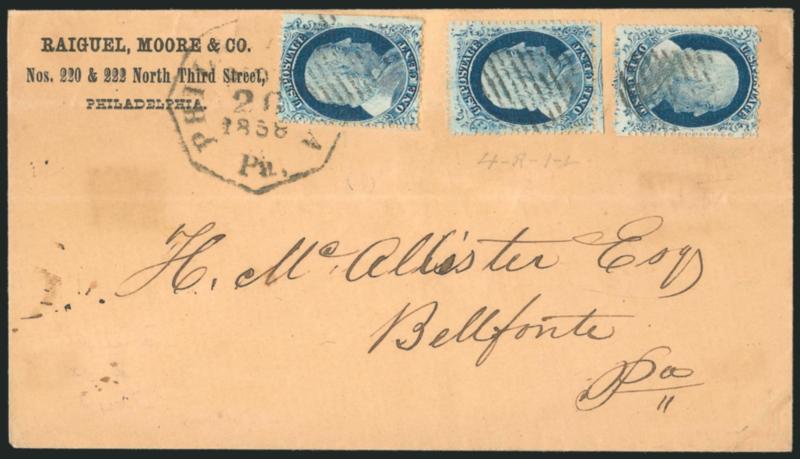 RAIGUEL, MOORE & CO.
Nos. 220 & 222 North Third Street,
PHILADELPHIA.
PHIL A
20
1858
Pa.
U.S. POSTAGE
ONE CENT
U.S. POSTAGE
ONE CENT
U.S. POSTAGE
ONE CENT
4-R-1-L
H. McAllister Esq
Bellfonte
Pa